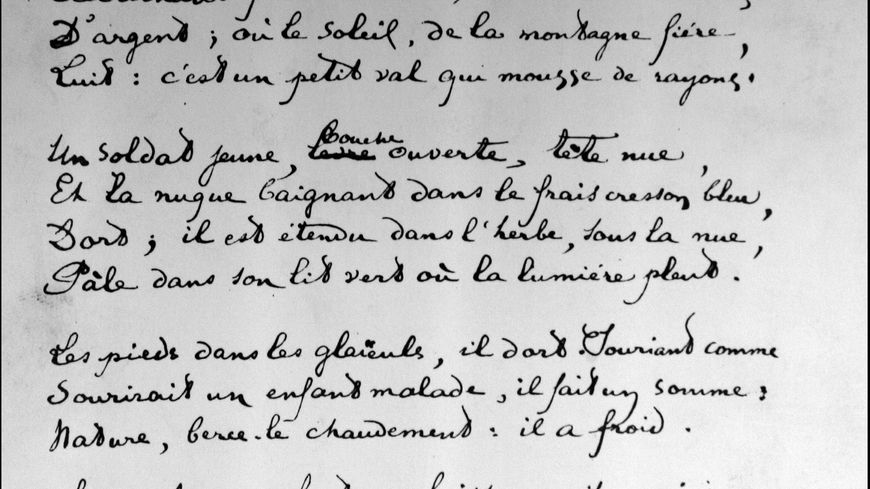 D'argent ; où le soleil, de la montagne fière,
Luit : c'est un petit val qui mousse de rayons.
Un soldat jeune, lèvre bouche ouverte, tête nue,
Et la nuque baignant dans le frais cresson bleu,
Dort ; il est étendu dans l'herbe, sous la nue,
Pâle dans son lit vert où la lumière pleut.
Les pieds dans les glaïeuls, il dort. Souriant comme
Sourirait un enfant malade, il fait un somme :
Nature, berce-le chaudement : il a froid.